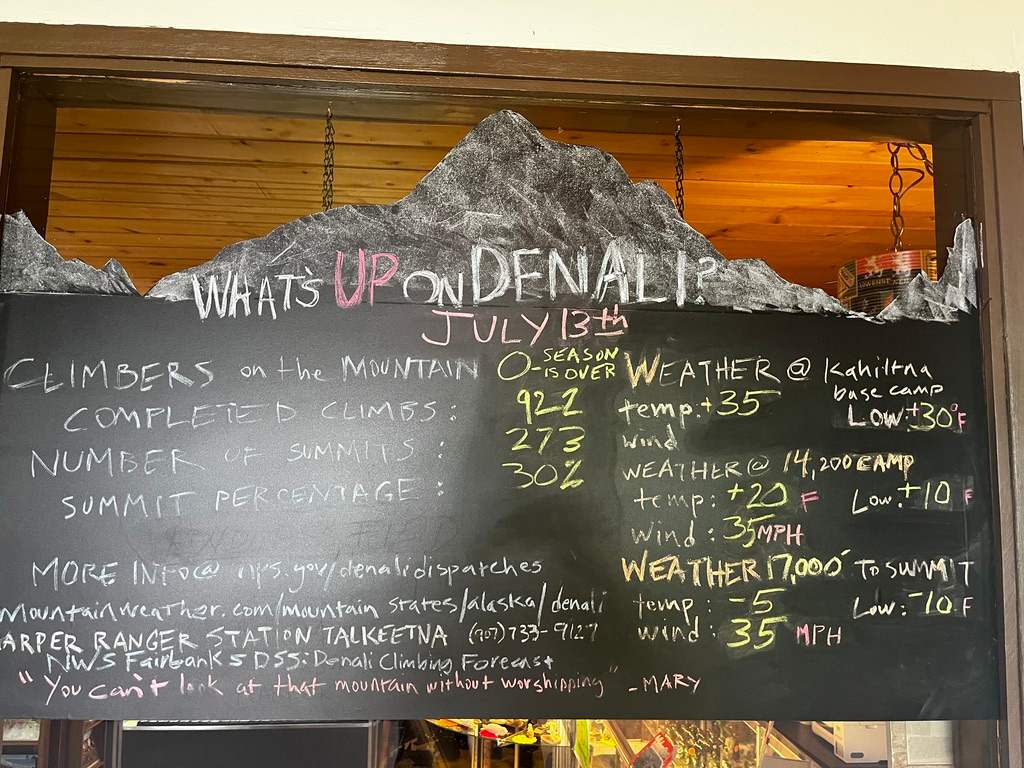 WHAT'S UP ON DENALI?
JULY 13th
CLIMBERS on the MOUNTAIN 0-SEASON IS OVER
COMPLETED CLIMBS: 922
NUMBER OF SUMMITS: 273
SUMMIT PERCENTAGE: 30%
MORE INFO@ nps.gov/denalidispatches
Mountainweather.com/mountain states/alaska/denali
ARPER RANGER STATION TALKEETNA (907) 733-9127
NWS Fairbanks DSS: Denali Climbing Forecast
"You can't look at that mountain without worshipping" -MARY
WEATHER @ Kahiltna
base camp
temp: +35 LOW: +30°F
wind
WEATHER @ 14,200 CAMP
temp: +20 F Low: +10 F
Wind: 35 MPH
WEATHER 17,000' TO SUMMIT
temp: -5 Low: -10 F
wind: 35 MPH